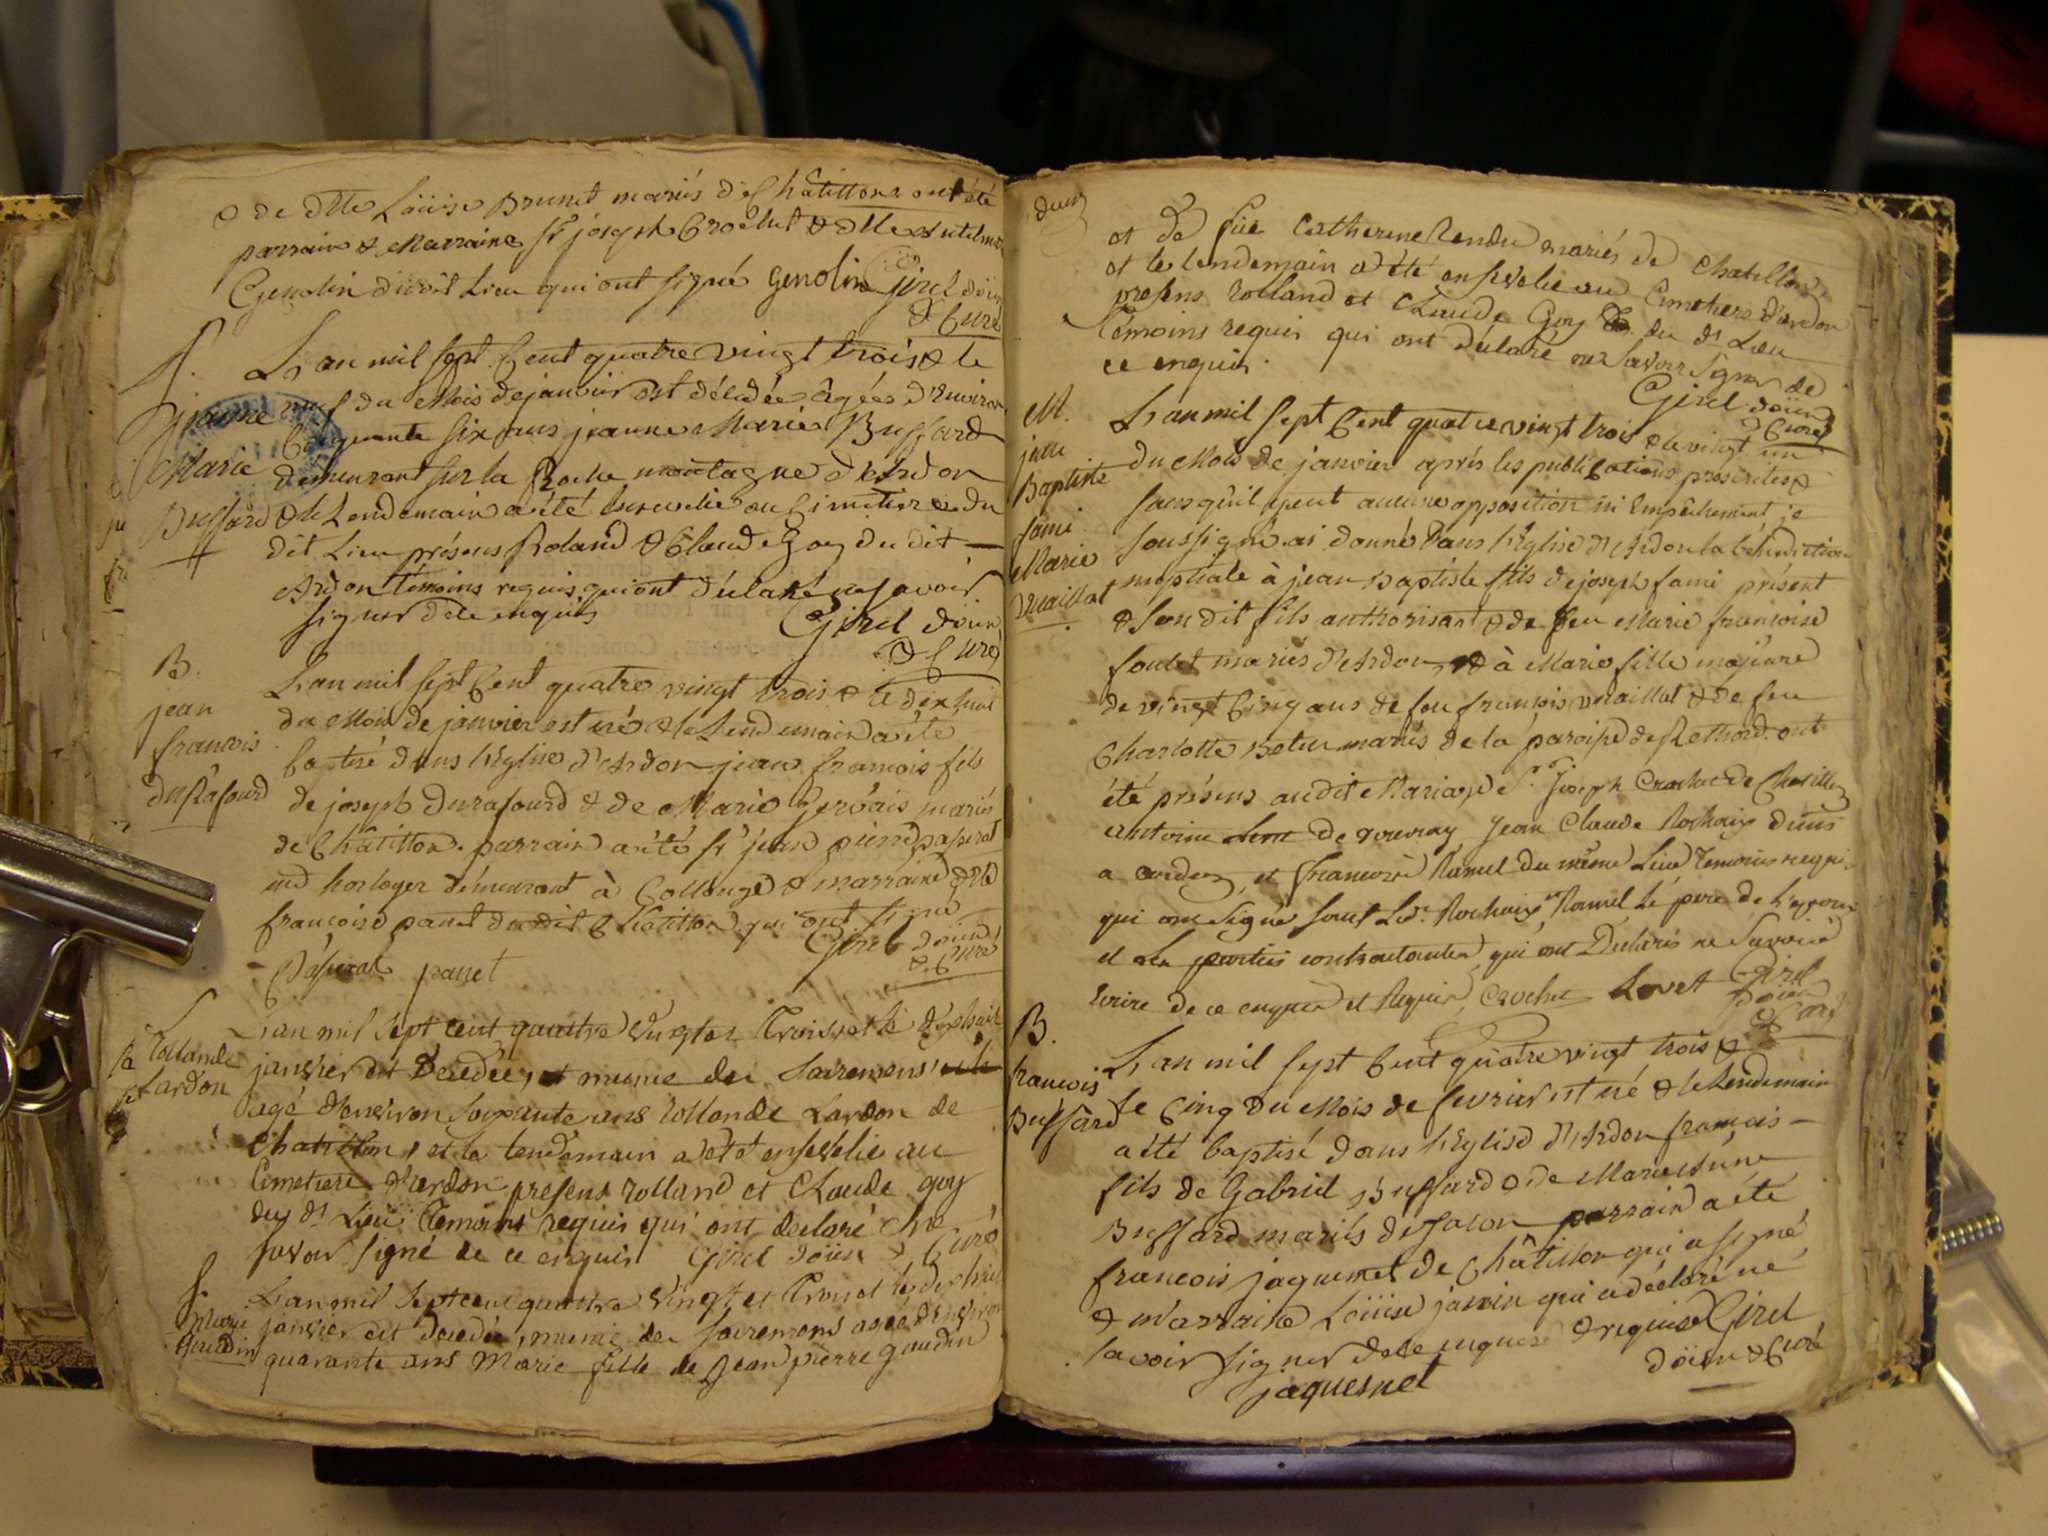 & de dlle Loüise Brunet mariés de Châtillon ont été
parrain & Marraine Sr joseph Crochet & dlle
Genolin dudit Lieu qui ont signé Genolin Girel doïen
& Curé
S.
jeanne
Marie
Buffard
L'an mil sept Cent quatre vingt trois & le
neuf du Mois de janvier est décédée âgée d'environ
Cinquante six ans jeanne Marie Buffard
demeurant sur la Roche montagne d'Ardon
& le Lendemain a été ensevelie au Cimetiere du
dit Lieu présens Roland & Claude Goy du dit
Ardon témoins requis qui ont déclaré ne savoir
signer de ce enquis Girel doïen
& Curé
B.
jean
francois
Durafourd
L'an mil sept Cent quatre vingt trois & le dix huit
du Mois de janvier est né & le Lendemain a été
baptisé dans l'Eglise d'Ardon jean francois fils
de joseph Durafourd & de Marie Gervais mariés
de Châtillon. parrain a été Sr jean pierre paserat
md horloger demeurant à Collonge & marraine dlle
francoise panet du dit Châtillon qui ont signé
Paserat panet Girel doïen
& Curé
S
Rollande
Lardon
L'an mil sept cent quattre vingt et Trois et le dixhuit
janvier est decedée, et munie des sacremens
agé d'environ soixante ans Rollande Lardon de
Chatillon, et le lendemain a été ensevelie au
Cimetiere d'ardon presens rolland et Claude goy
du dt Lieu Temoins requis qui ont declaré ne
savoir signé de ce enquis Girel doïen & Curé
S
Marie
Gaudin
L'an mil sept cent quattre vingt et Trois et le dixhuit
janvier est decedée, munie des sacremens agée d'environ
quarante ans Marie fille de Jean pierre gaudin
et de füe Catherine Rendu mariés de Chatillon,
et le lendemain a été ensevelie au Cimetiere d'ardon
presens rolland et Claude Goy du dt Lieu
Témoins requis qui ont déclaré ne savoir signer de
ce enquis.
Girel doïen
& Curé
M.
jean
Baptiste
fami
Marie
Vuaillat
L'an mil sept Cent quatre vingt trois & le vingt un
du Mois de janvier après les publications prescrites &
sans qu'il y eut aucune opposition ni Empêchement je
soussigné ai donné dans l'Eglise d'Ardon la bénédiction
nuptiale à jean Baptiste fils de joseph fami présent
& son dit fils authorisant & de feu Marie francoise
foulet mariés d'Ardon, & à Marie fille majeure
de vingt Cinq ans de feu francois Vuaillat & de feu
Charlotte mariés de la paroisse de ont
été présens audit Mariage Sr Joseph Crochet de Chatillon
antoine de vouvray Jean Claude Rochaix
a ardon, et francois Ramel du même Lieu Temoins requis
qui ont signé sauf Led. Rochaix Ramel Le pere de l'epoux
et Les parties contractantes qui ont Declarés ne Savoir
Ecrire de ce enquis et Requis, Crochet Lovet Girel
doïen
& Curé
B.
francois
Buffard
L'an mil sept Cent quatre vingt trois &
le Cinq du Mois de fevrier est né & le Lendemain
a été baptisé dans l'Eglise d'Ardon francois
fils de Gabriel Buffard & de Marie Anne
Buffard mariés de parrain a été
francois jaquemet de Châtillon qui a signé
& marraine Loüise janin qui a déclaré ne
savoir signer de ce enquise & requise Girel
doïen & Curé
jaquemet